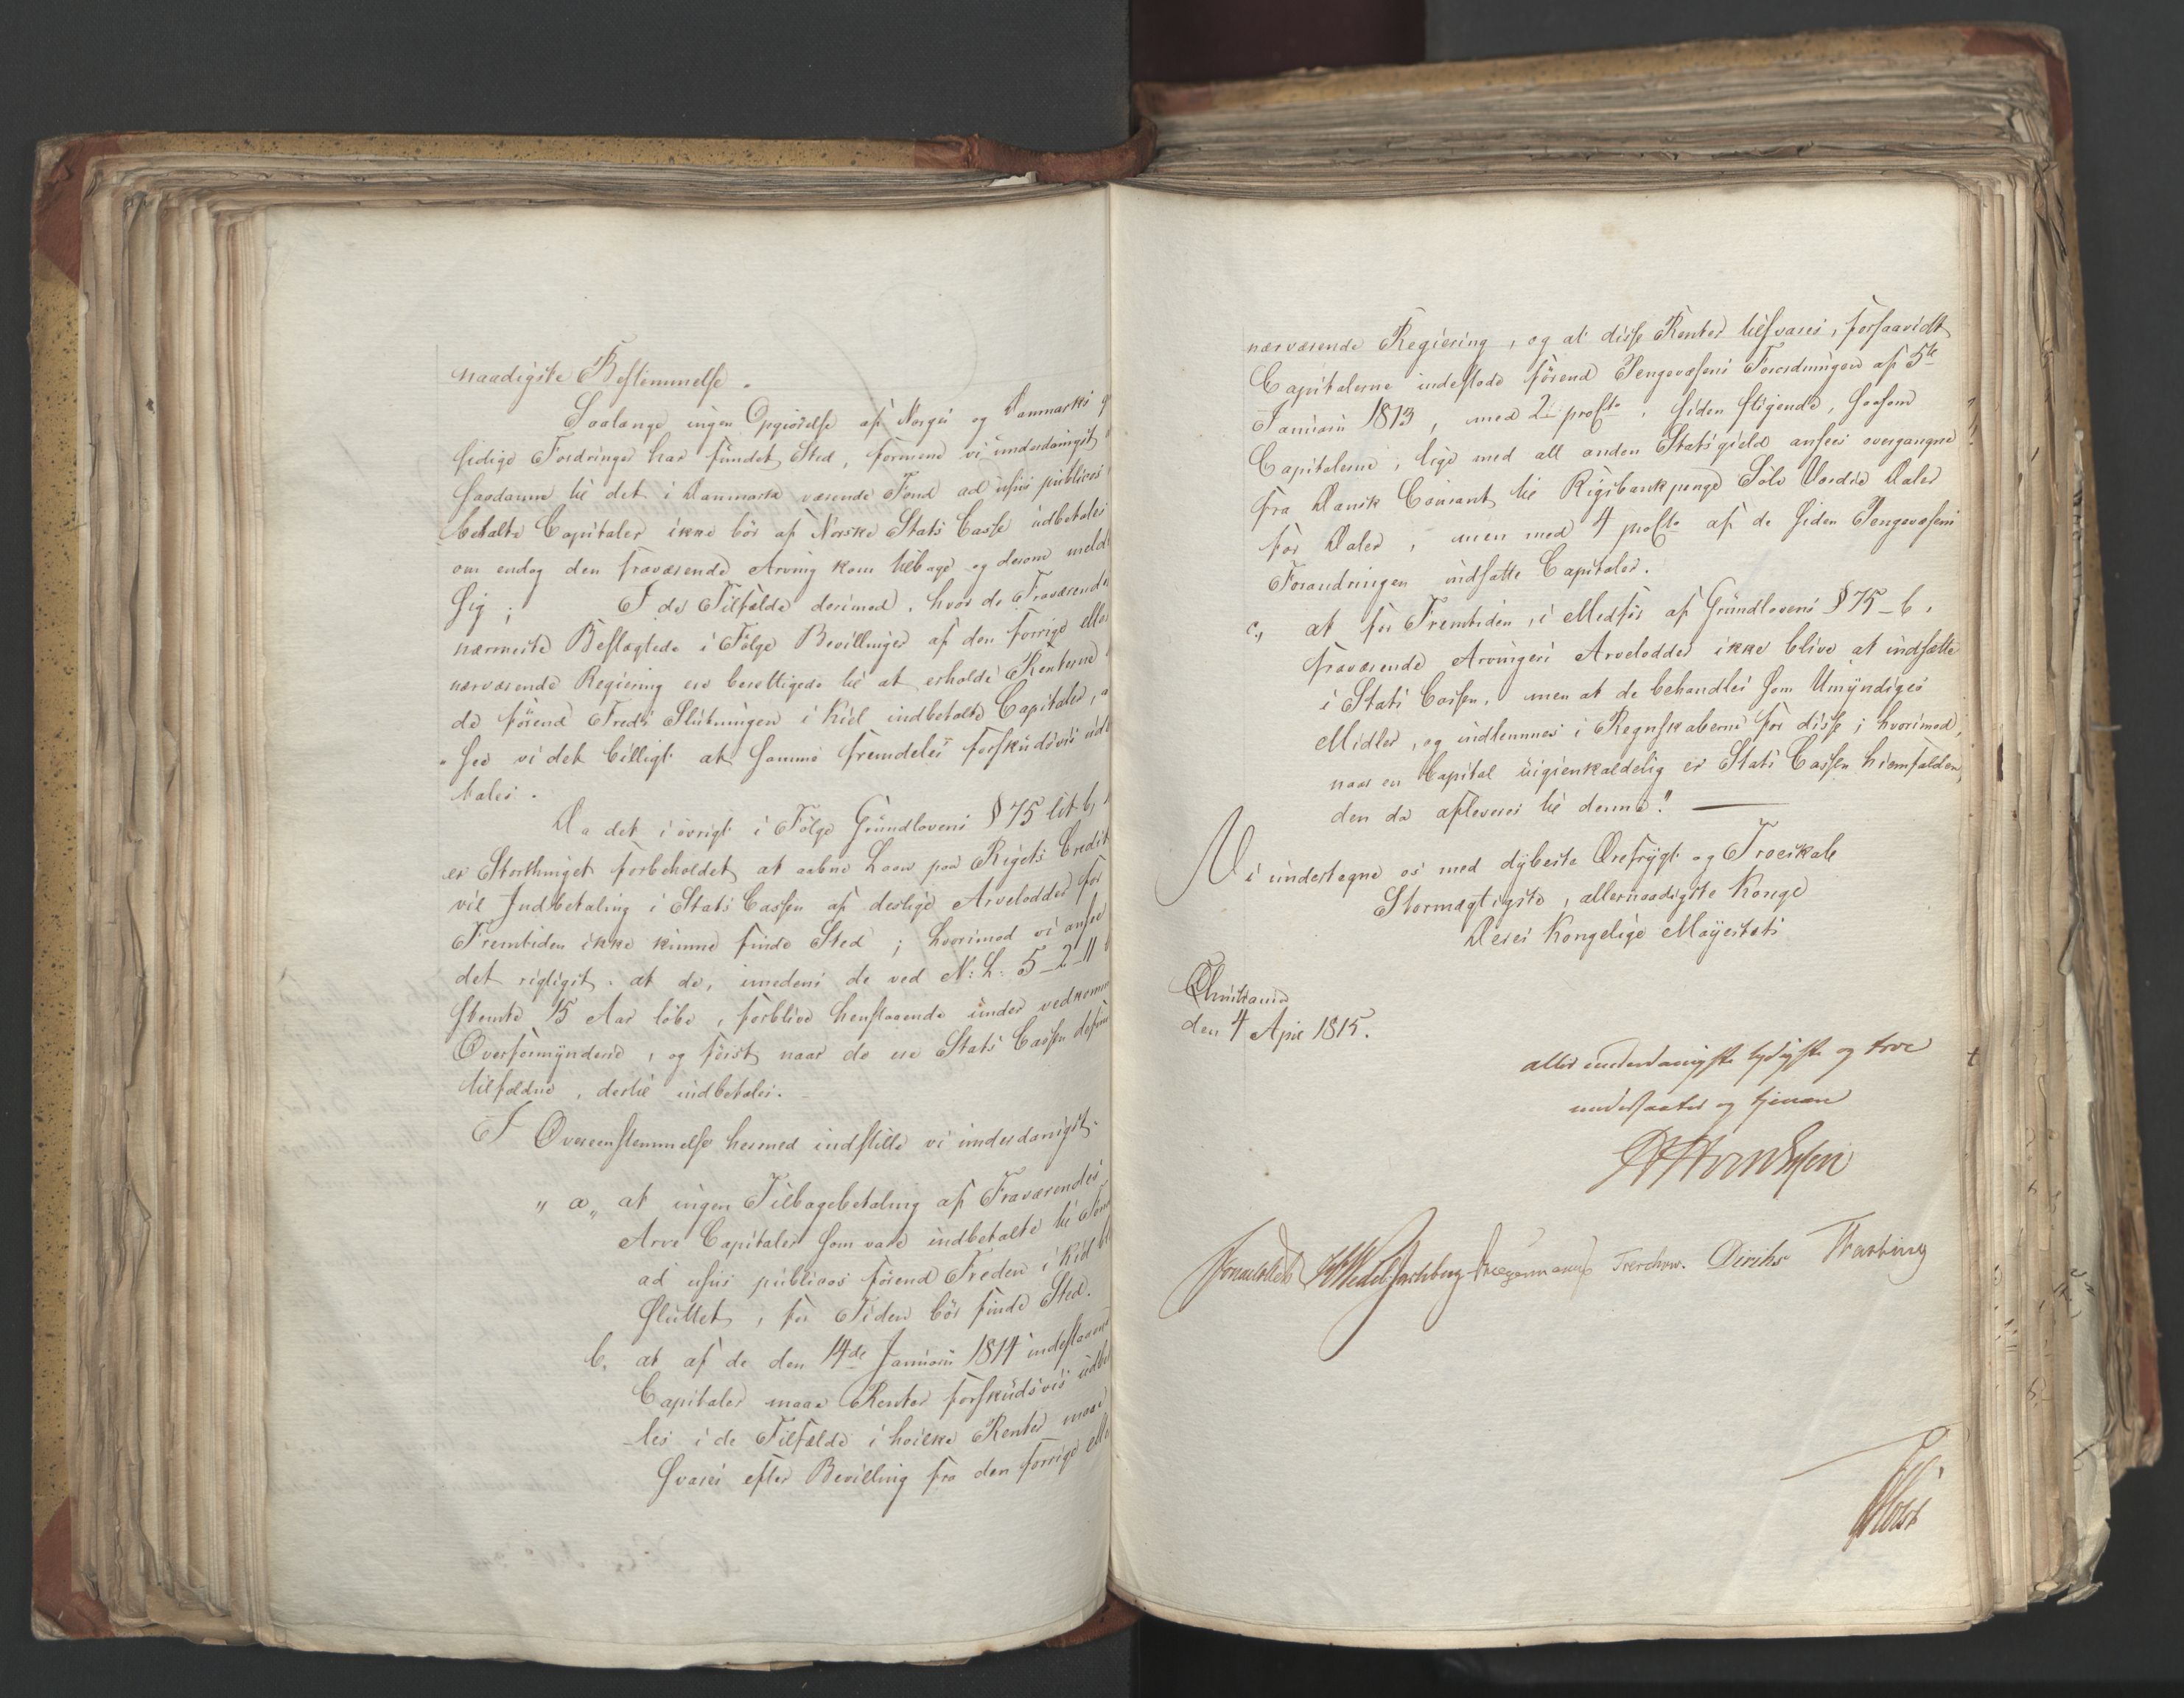 naadigste Bestemmelse.
Saalænge ingen Opgiørelse af Norges og Danmarks
sidige Fordringer har fundet Sted, formene vi underdanigst
saadanne til det i Danmark værende Fond ad usus publicos
betalte Capitaler ikke bör af Norske Stats Casse udbetales
om endog den fraværende Arving kom tilbage og derom meldte
sig; I de Tilfælde derimod, hvor de Fraværendes
nærmeste Beslægtede i Fölge Bevillinger af den forrige eller
nærværende Regiering ere berettigede til at erholde Renterne
de förend Freds Slutningen i Kiel indbetalte Capitaler,
see vi det billigt at samme fremdeles forskudsvis udbe
tales.
Da det i övrigt i Fölge Grundlovens § 75 lit b,
er Storthinget forbeholdet at aabne Laan paa Rigets Credit
vil Indbetaling i Stats Cassen af deslige Arvelodder for
Fremtiden ikke kunne finde Sted; hvorimod vi ansee
det rigtigst, at de, imedens de ved N: L: 5-2-11
stemte 15 Aar löbe, forblive henstaaende under vedkomm
Overformyndere, og först naar de ere Stats Cassen
tilfaldne, dertil indbetales.
I Overeenstemmelse hermed indstille vi underdanigst.
" a, at ingen Tilbagebetaling af Fraværendes
Arve Capitaler som vare indbetalte til Fond
ad usus publicos förend Freden i Kiel bl
sluttet, for Tiden bör finde Sted.
b, at af de den 14de Januarii 1814 indestaaend
Capitaler maae Renter forskudsvis udbe
-les i de Tilfælde i hvilke Renter maae
svares efter Bevilling fra den forrige eller
nærværende Regiering, og at disse Renter tilsvares, forsaavidt
Capitalerne indestode förend Pengevæsens Forordningen af 5te
Januarii 1813, med 2 proCto, siden stigende, saasom
Capitalerne, lige med all anden Statsgield ansees overgangne
fra Dansk Courant til Rigsbankpenge Sölv Værdie Daler
for Daler, men med 4 proCto af de siden Pengevæsens
Forandringen indsatte Capitaler.
c., at for Fremtiden, i Medför af Grundlovens § 75-b,
fraværende Arvingers Arvelodder ikke blive at indsætte
i Stats Cassen, men at de behandles som Umyndiges
Midler, og indlemmes i Regnskaberne for disse; hvorimod,
naar en Capital uigienkaldelig er Stats Cassen hiemfalden,
den da afleveres til denne."
Vi undertegne os med dybeste Ærefrygt og Troeskab
Stormægtigste, allernaadigste Konge
Deres Kongelige Mayestæts
Christiania
den 4 April 1815.
allerunderdanigste lydigste og troe
undersaatter og tjenere
HHvonEssen
Sommerhielm HWedel Jarlsberg Hegermann Treschow. Diriks Fasting
Holst